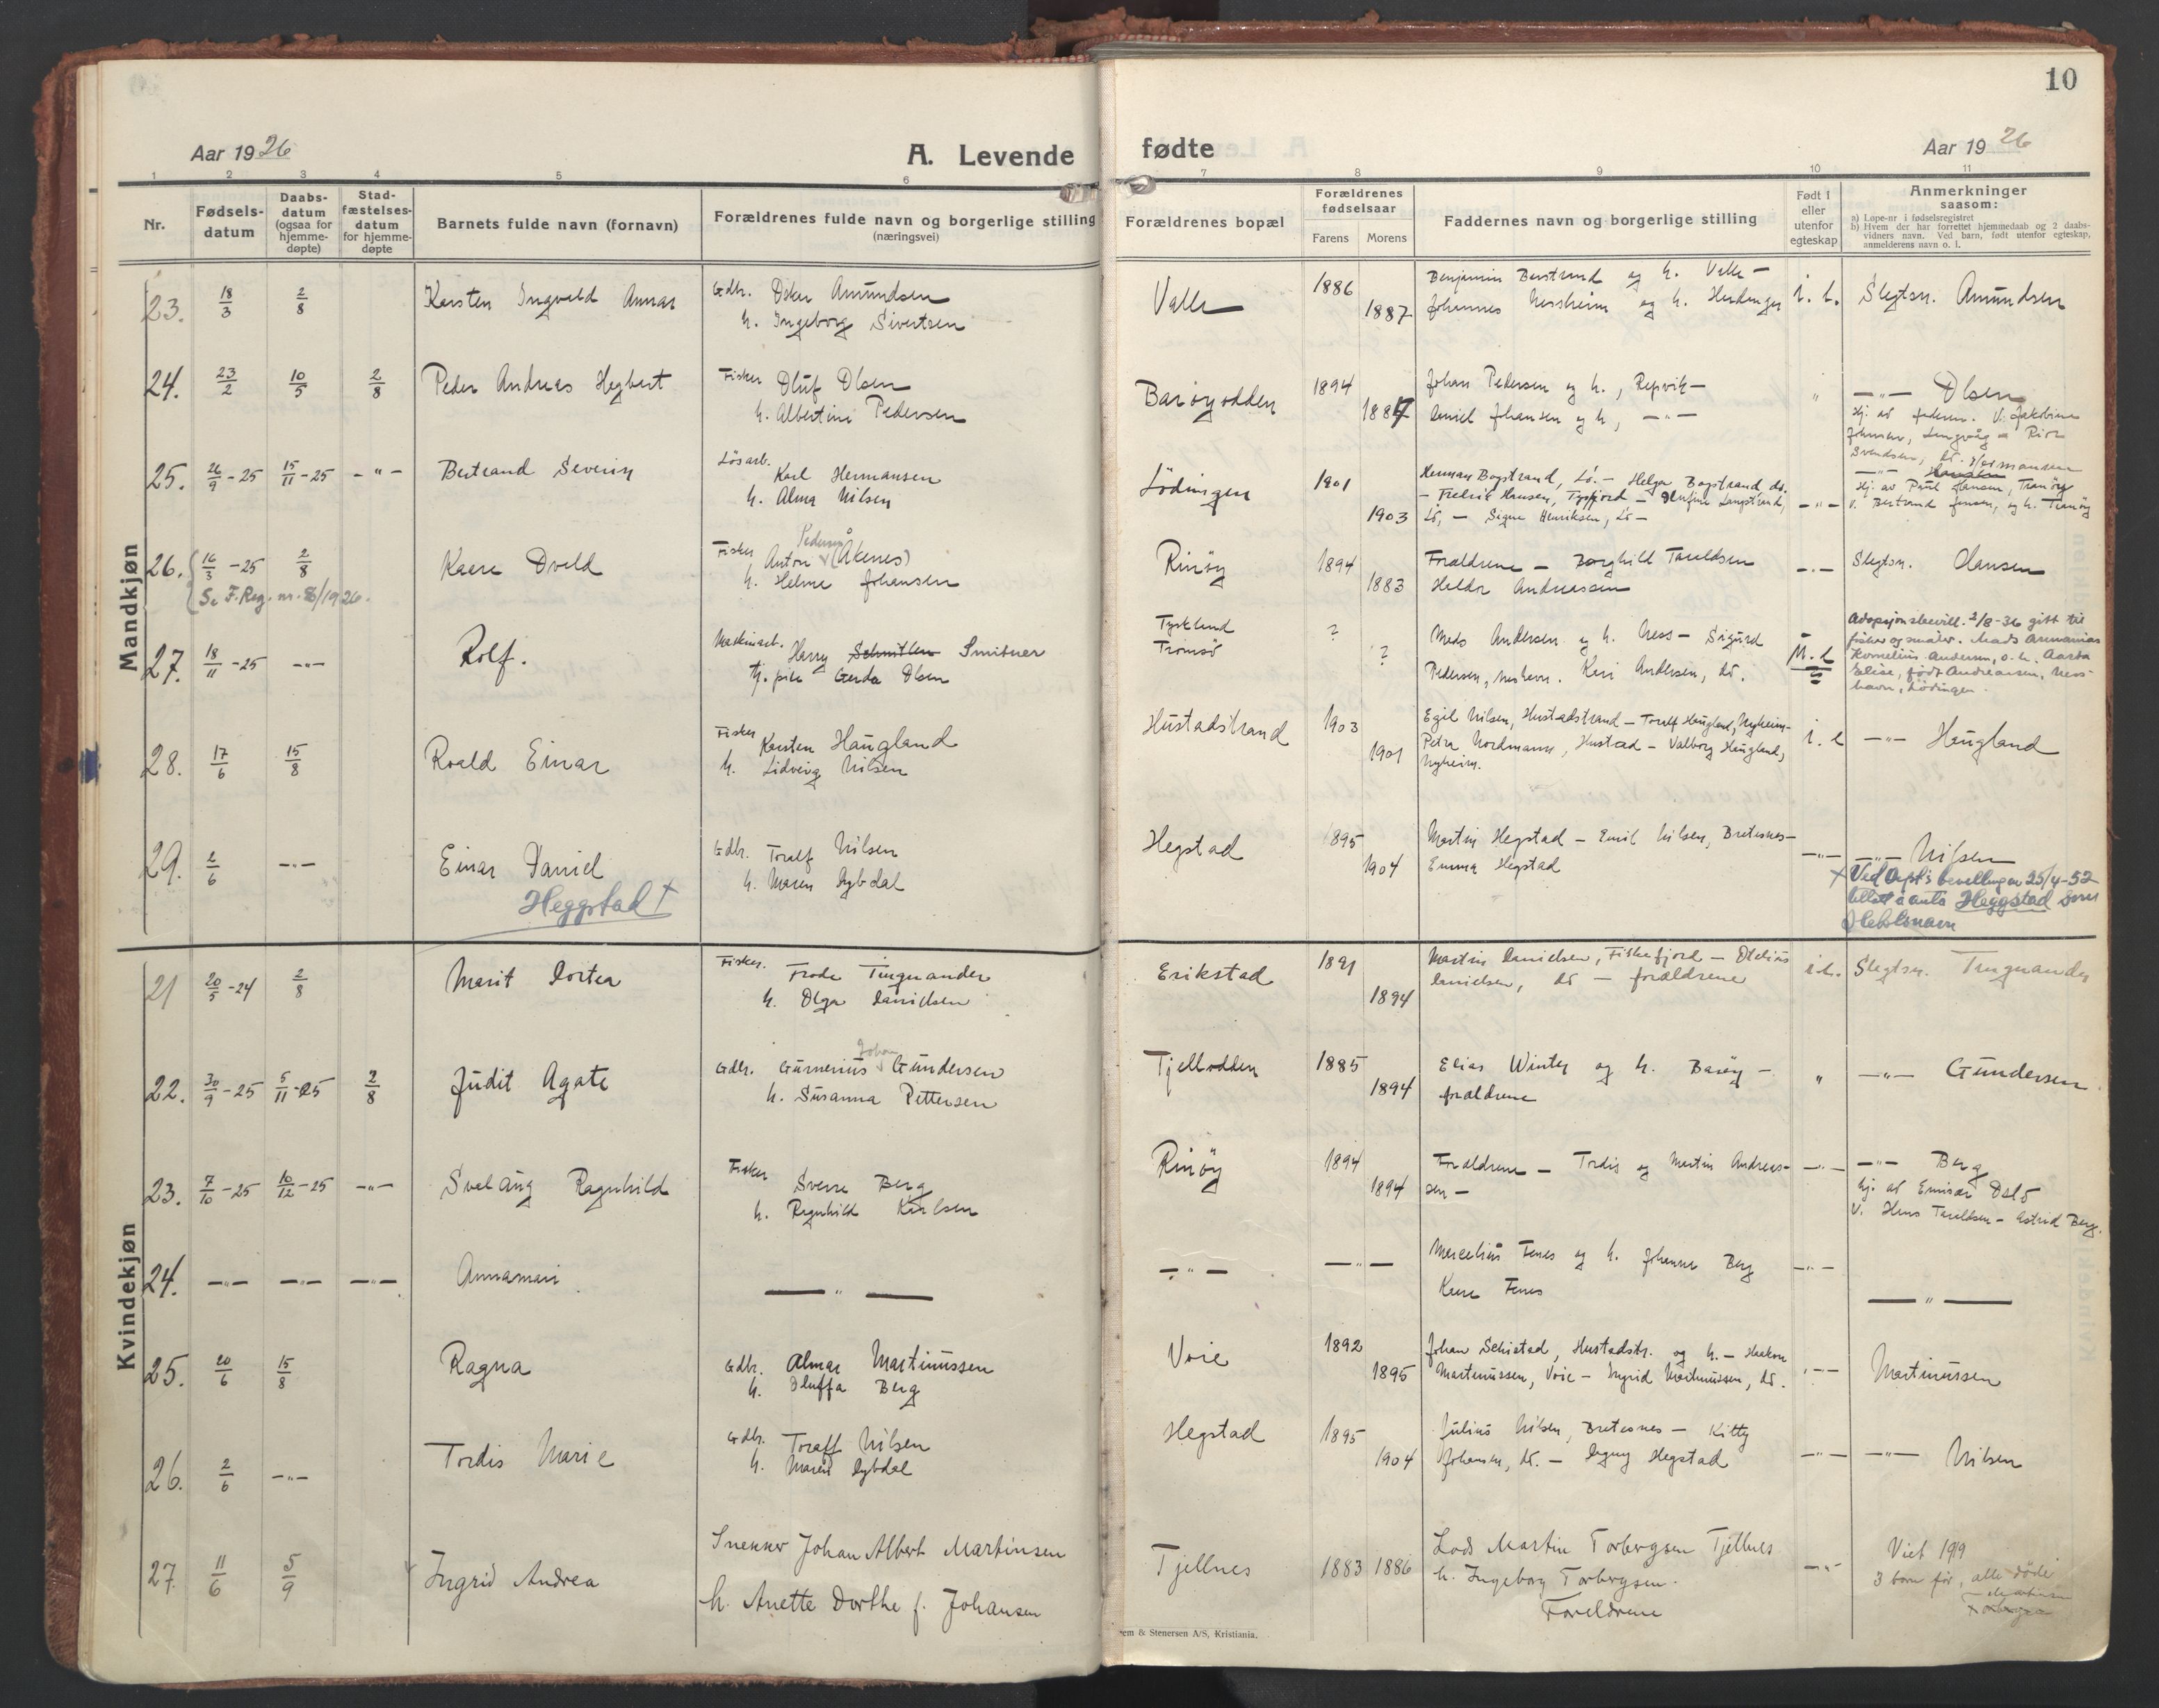 10
Aar 1926
A. Levende
fødte
Aar 1926
1 2 3 4 5 6 7 8 9 10 11
Nr.
Fødsels-
datum
Daabs-
datum
(ogsaa for
hjemme-
døpte)
Stad-
fæstelses-
datum
for hjemme-
døpte
Barnets fulde navn (fornavn)
Forældrenes fulde navn og borgerlige stilling
(næringsvei)
Forældrenes bopæl
Forældrenes
fødselsaar
Farens Morens
Faddernes navn og borgerlige stilling
Født i
eller
utenfor
egteskap
Anmerkninger
saasom:
a) Løpe-nr i fødselsregistret
b) Hvem der har forrettet hjemmedaab og 2 daabs-
vidners navn. Ved barn, født utenfor egteskap,
anmelderens navn o. l.
Mandkjøn
23. 18/3 2/8 Karsten Ingvald Annar
Gdbr. Oskar Amundsen
h. Ingeborg Sivertsen
Valle 1886 1887
Benjamin Barstrand og h. Valle -
Johannes Nessheim og h.
i. e. Slegtsn. Amundsen
24. 23/2 10/5 2/8 Peder Andreas Hegbert
Fisker Oluf Olsen
h. Albertine Pedersen
Barøyodden 1894 1887
Johan Pedersen og h., Repvik -
Daniel Johansen og h, -"-
" -"- Olsen
Hj. av faderen. V. Jakobine
25. 26/9-25 15/11-25 -"- Bertrand Severin
Løsarb. Karl Hermansen
h. Alma Nilsen
Lödingen 1901 1903
Herman Bogstrand, Lö. - Helga Bogstrand do.
- Fredrik Hansen, Tysfjord - Langstrand,
Lö, - Signe Henriksen, Lö -
-"- -"- Hermansen
Hj. av Paul Hansen, Tranöy
V. Bertrand Jensen, og h. Tranöy
26. 16/3-25 2/8 Kaare Osvald
Se F. Reg. nr. 8/1926.
Fisker Anton Pedersen (Åkenes)
h. Helene Johansen
Rinöy 1894 1883
Forældrene - Borghild Taraldsen
Haldor Andreassen
-"- Slegtsn. Hansen
27. 18/11-25 -"- Rolf.
Maskinarb. Harry Schmitlen Smitner
tj. pike Gerda Olsen
Tyskland
Tromsö
? ?
Mads Andersen og h. Ness - Sigurd
Pedersen, Neshavn. Kari Andersen, do.
u. e
Adopsjonsbevill. 2/8-36 gitt til
fisker og smaabr. Mads Annanias
Kornelius Andersen, o. h. Aasta
Elise, født Andreassen, Nes-
havn, Lödingen.
28. 17/6 15/8 Roald Einar
Fisker Karsten Haugland
h. Lidveig Nilsen
Hustadstrand 1903 1901
Egil Nilsen, Hustadstrand - Toralf Haugland, Nyheim -
Petra Nordmann, Hustad - Valborg Haugland,
Nyheim.
i. e -"- Haugland
29. 2/6 -"- Einar Daniel
Heggstad +
Gdbr. Toralf Nilsen
h. Maren Dybdal
Hegstad 1895 1904
Martin Hegstad - Emil Nilsen, Bretesnes -
Emma Hegstad
-"- -"- Nilsen
x Ved Dept's bevilling av 25/4-52
tillatt å anta Heggstad som
slektsnavn
Kvindekjøn
21 20/5-24 2/8 Marit Dortea
Fisker. Frode Tingnander
h. Olga Danielsen
Erikstad 1891 1894
Martin Danielsen, Fiskefjord - Otelius
Danielsen, do - forældrene
i e. Slegtsn. Tingnander
22. 30/9-25 5/11-25 2/8 Judit Agate
Gdbr. Gurnerius Johan Gundersen
h. Susanna Pettersen
Tjellodden 1885 1894
Elias Winter og h. Baröy -
forældrene
" -"- Gundersen
23. 7/10-25 10/12-25 -"- Svelaug Ragnhild
Fisker Sverre Berg
h. Ragnhild Karlsen
Rinöy 1894 1894
Forældrene - Tordis og Martin Andreas-
sen -
-"- -"- Berg
Hj. av Emissær Oslö
V. Hans Taraldsen - Astrid Berg.
24. -"- -"- -"- Annamari
-"-
-"- -"-
Marcelius Fenes og h. Johanna Berg
Kaare Fenes
-"- -"-
25. 20/6 15/8 Ragna
Gdbr. Almar Martinussen
h. Oluffa Berg
Voie 1892 1895
Johan Schistad, Hustadstr. og h. - Haakon
Martinussen, Voie - Ingrid Martinussen, do.
-"- Martinussen
26. 2/6 -"- Tordis Marie
Gdbr. Toralf Nilsen
h. Maren Dybdal
Hegstad 1895 1904
Julius Nilsen, Bretesnes - Kitty
Johansen, do. - Dagny Hegstad
-"- -"- Nilsen
27. 11/6 5/9 Ingrid Andrea
Snekker Johan Albert Martinsen
h. Anette Dorthe f. Johansen
Tjellnes 1883 1886
Lods Martin Torbergsen Tjellnes
h. Ingeborg Torbergsen.
Foreldrene
-"- Viet 1919
3 barn før, alle döde
Martinsen
Torbergsen
em & Stenersen A/S, Kristiania.